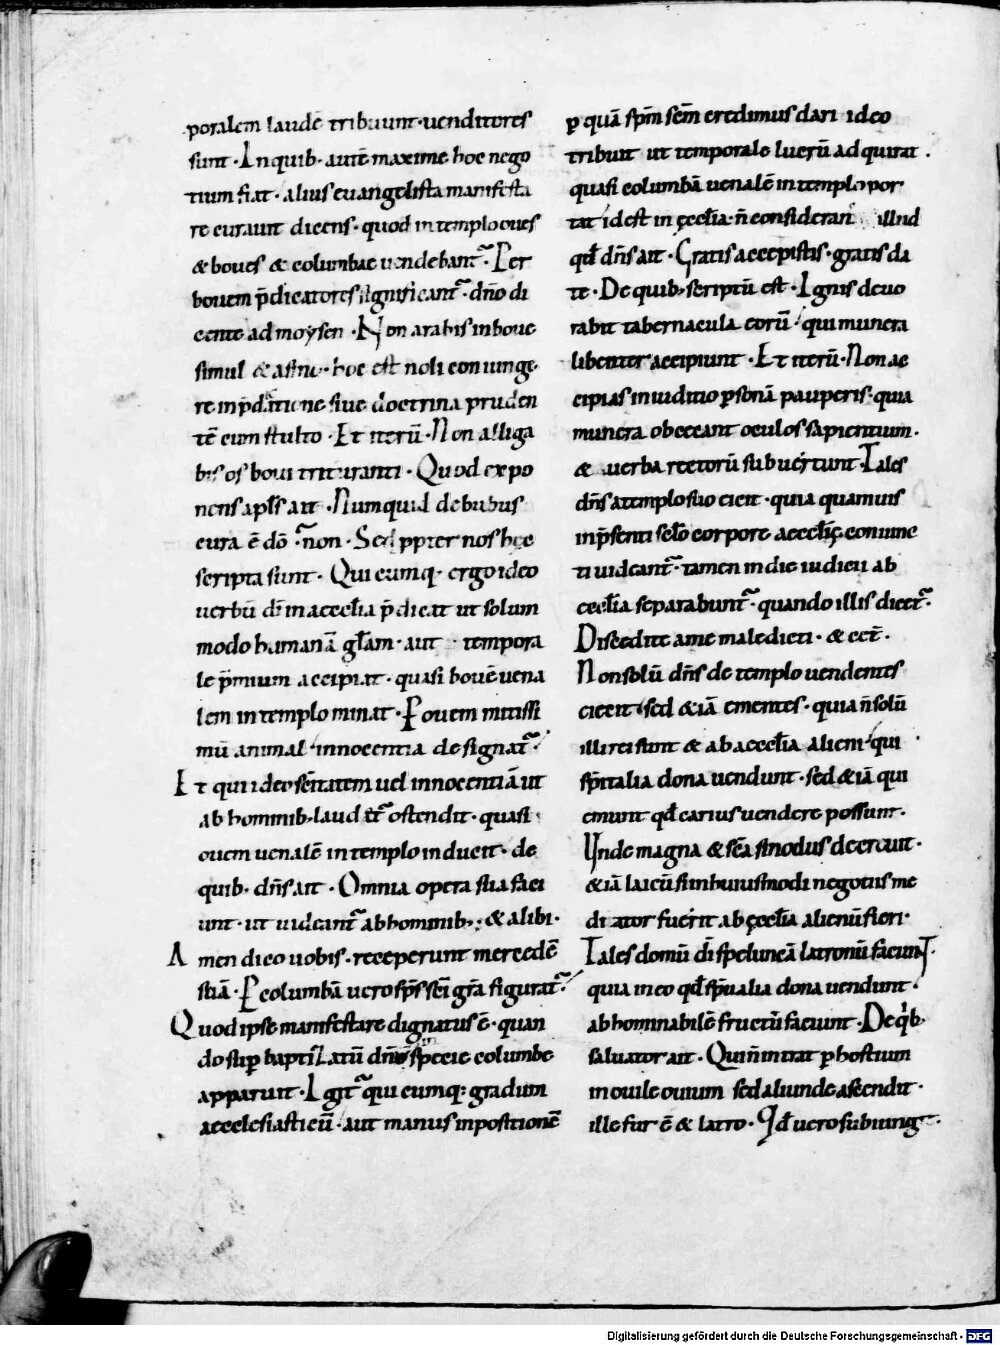 poralem laudē tribuunt · uenditores
sunt · In quib· autē maxime hoc nego
tium fiat · alius euangelista manifesta
re curauit dicens · quod in templo oues
& boues & columbae uendebant᷑ · Per
bouem p̄dicatores significant᷑ · dn̄o di
cente ad moysen · Non arabis in boue
simul & asino · hoc est noli coniunge
re in p̄dicatione siue doctrina pruden
tē cum stulto · Et iterū · Non alliga
bis os boui trituranti · Quod expo
nens apl̄s ait · Numquid de bubus
cura ē dō · non · Sed ppter nos hęc
scripta sunt · Qui cumq· ergo ideo
uerbū dī in aecclā p̄dicat ut solum
modo humanā glām · aut tempora
le p̄mium accipiat · quasi bouē uena
lem in templo minat · P ouem mitissi
mū animal innocentia designat᷑ ·
Et qui ideo sc̄itatem uel innocentiā ut
ab hominib· laudet᷑ ostendit · quasi
ouem uenalē in templo inducit · de
quib· dn̄s ait · Omnia opera sua faci
unt · ut uideant᷑ ab hominib; & alibi ·
Amen dico uobis · receperunt mercedē
suā · P columbā uero sp̄s sc̄i grā figurat᷑ ·
Quod ipse manifestare dignatus ē · quan
do sup baptizatū dn̄m in specie columbe
apparuit · Igit᷑ qui cumq; gradum
aecclesiasticū · aut manus inpositionē
p quā sp̄m sc̄m credimus dari ideo
tribuit ut temporale lucrū adquirat ·
quasi columbā uenalē in templo por
tat id est in ęcclīa · n̄ considerans illud
qđ dn̄s ait · Gratis accepistis · gratis da
te · De quib· scriptū est · Ignis deuo
rabit tabernacula eorū · qui munera
libenter accipiunt · Et iterū · Non ac
cipias in iuditio psonā pauperis · quia
munera obcecant oculos sapientium ·
& uerba rectorū subuertunt · Tales
dn̄s a templo suo eicit · quia quamuis
in p̄senti sclō corpore aecclīę coniunc
ti uideant᷑ · tamen in die iudicii ab
ecclīa separabunt᷑ · quando illis dicet᷑ ·
Discedite a me maledicti · & cet̄ ·
Non solū dn̄s de templo uendentes
eiecit sed & iā ementes · quia n̄ solū
illi rei sunt & ab aecclīa alieni · qui
sp̄italia dona uendunt · sed & iā qui
emunt · qđ carius uendere possunt ·
Unde magna & sc̄a sinodus decreuit ·
& iā laicū si in huiusmodi negotiis me
diator fuerit ab ęcclīa alienū fieri ·
Tales domū dī speluncā latronū faciunt ·
quia in eo qđ sp̄ualia dona uendunt ·
abhominabilē fructū faciunt · De qͥb·
saluator ait · Qui n̄ intrat p hostium
in ouile ouium sed aliunde ascendit ·
ille fur ē & latro · Qđ uero subiungit᷑ ·